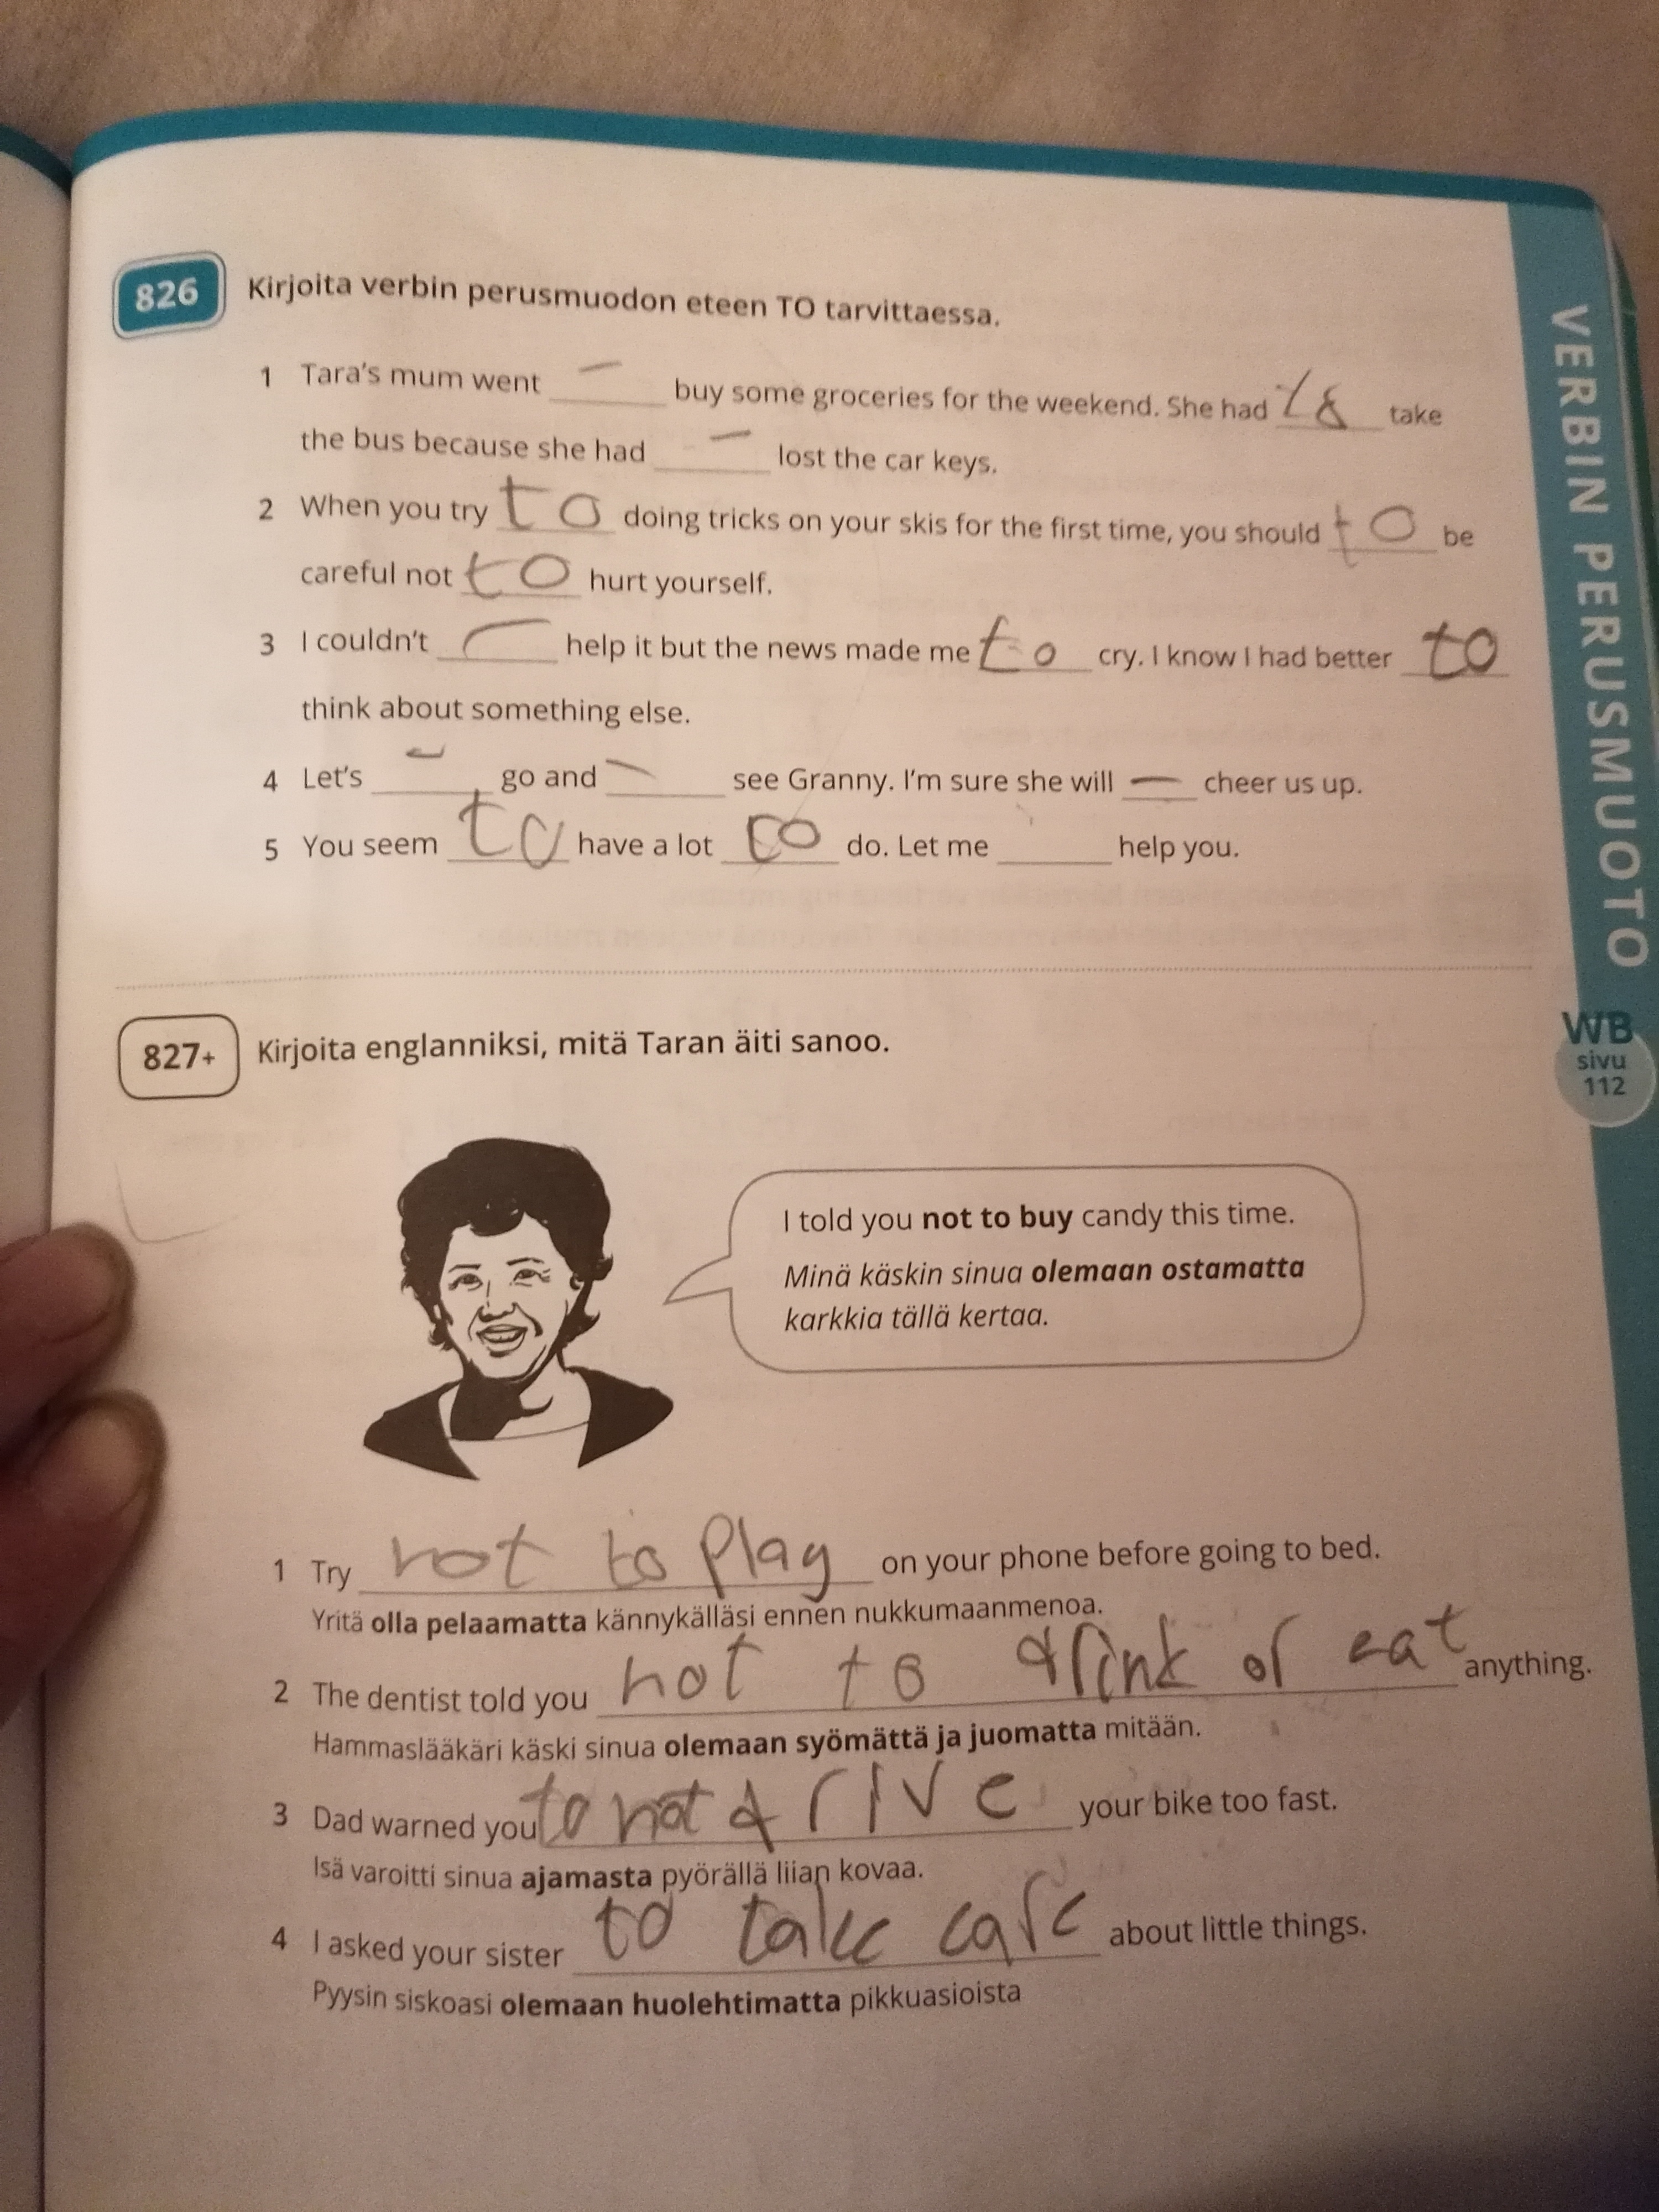 826 Kirjoita verbin perusmuodon eteen TO tarvittaessa.
1 Tara's mum went — buy some groceries for the weekend. She had to take
the bus because she had — lost the car keys.
2 When you try to doing tricks on your skis for the first time, you should to be
careful not to hurt yourself.
3 I couldn't — help it but the news made me to cry. I know I had better to
think about something else.
4 Let's — go and — see Granny. I'm sure she will — cheer us up.
5 You seem to have a lot to do. Let me ______ help you.
VERBIN PERUSMUOTO
WB
sivu
112
827+ Kirjoita englanniksi, mitä Taran äiti sanoo.
I told you not to buy candy this time.
Minä käskin sinua olemaan ostamatta
karkkia tällä kertaa.
1 Try not to play on your phone before going to bed.
Yritä olla pelaamatta kännykälläsi ennen nukkumaanmenoa.
2 The dentist told you not to drink or eat anything.
Hammaslääkäri käski sinua olemaan syömättä ja juomatta mitään.
3 Dad warned you to not drive your bike too fast.
Isä varoitti sinua ajamasta pyörällä liian kovaa.
4 I asked your sister to take care about little things.
Pyysin siskoasi olemaan huolehtimatta pikkuasioista